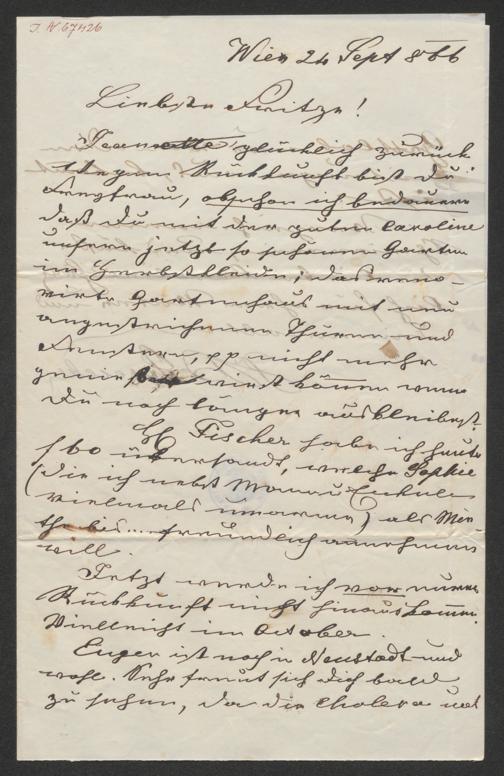 I. N. 67426
Wien 24 Sept 866
Liebste Fritze!
Jeannette glücklich zurück
Wegen Rückkunft bist du
Freyfrau, obschon ich bedauere
daß du mit der guten Caroline
unsern jetzt so schönen Garten
im Herbstkleide; das reno-
virte Gartenhaus mit neu
angestrichenen Thüren und
Fenstern, pp nicht mehr
genießen wirst können wenn
du noch länger ausbleibest.
H Fischer habe ich heute
f 60 übersandt, welche Sophie
(die ich nebst Enkeln
vielmals umarme) als Mie-
the bis ... freundlich annehmen
will.
Jetzt werde ich vor eurer
Rückkunft nicht hinauskommen.
Vielleicht im October.
Eugen ist noch in Neustadt und
wohl. Sehr freut sich dich bald
zu sehen, da die Cholera und